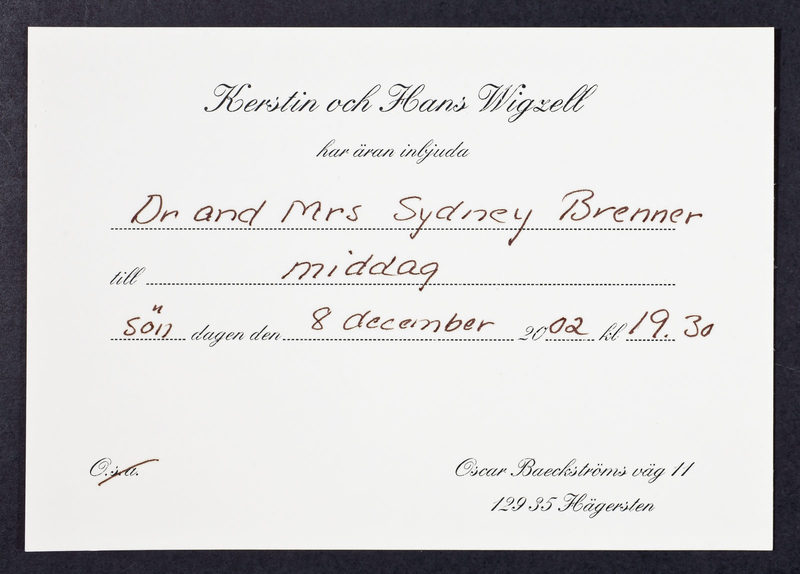 Kerstin och Hans Wigzell
har äran inbjuda
Dr and Mrs Sydney Brenner
till middag
sön dagen den 8 december 2002 kl 19.30
O.s.a.
Oscar Baeckströms väg 11
129 35 Hägersten